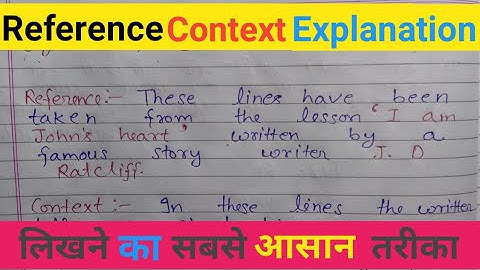 Reference Context Explanation
Reference:- These lines have been
taken from the lesson ‘I am
John's heart’ written by a
famous story writer J. D
Ratcliff.
Context:- In these lines the written
लिखने का सबसे आसान तरीका